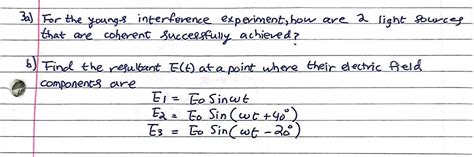 3a) For the youngs interference experiment, how are 2 light sources
that are coherent successfully achieved?
b) Find the resultant E(t) at a point where their electric field
components are
E1 = E0 Sinwt
E2 = E0 Sin(wt + 40°)
E3 = E0 Sin(wt - 20°)